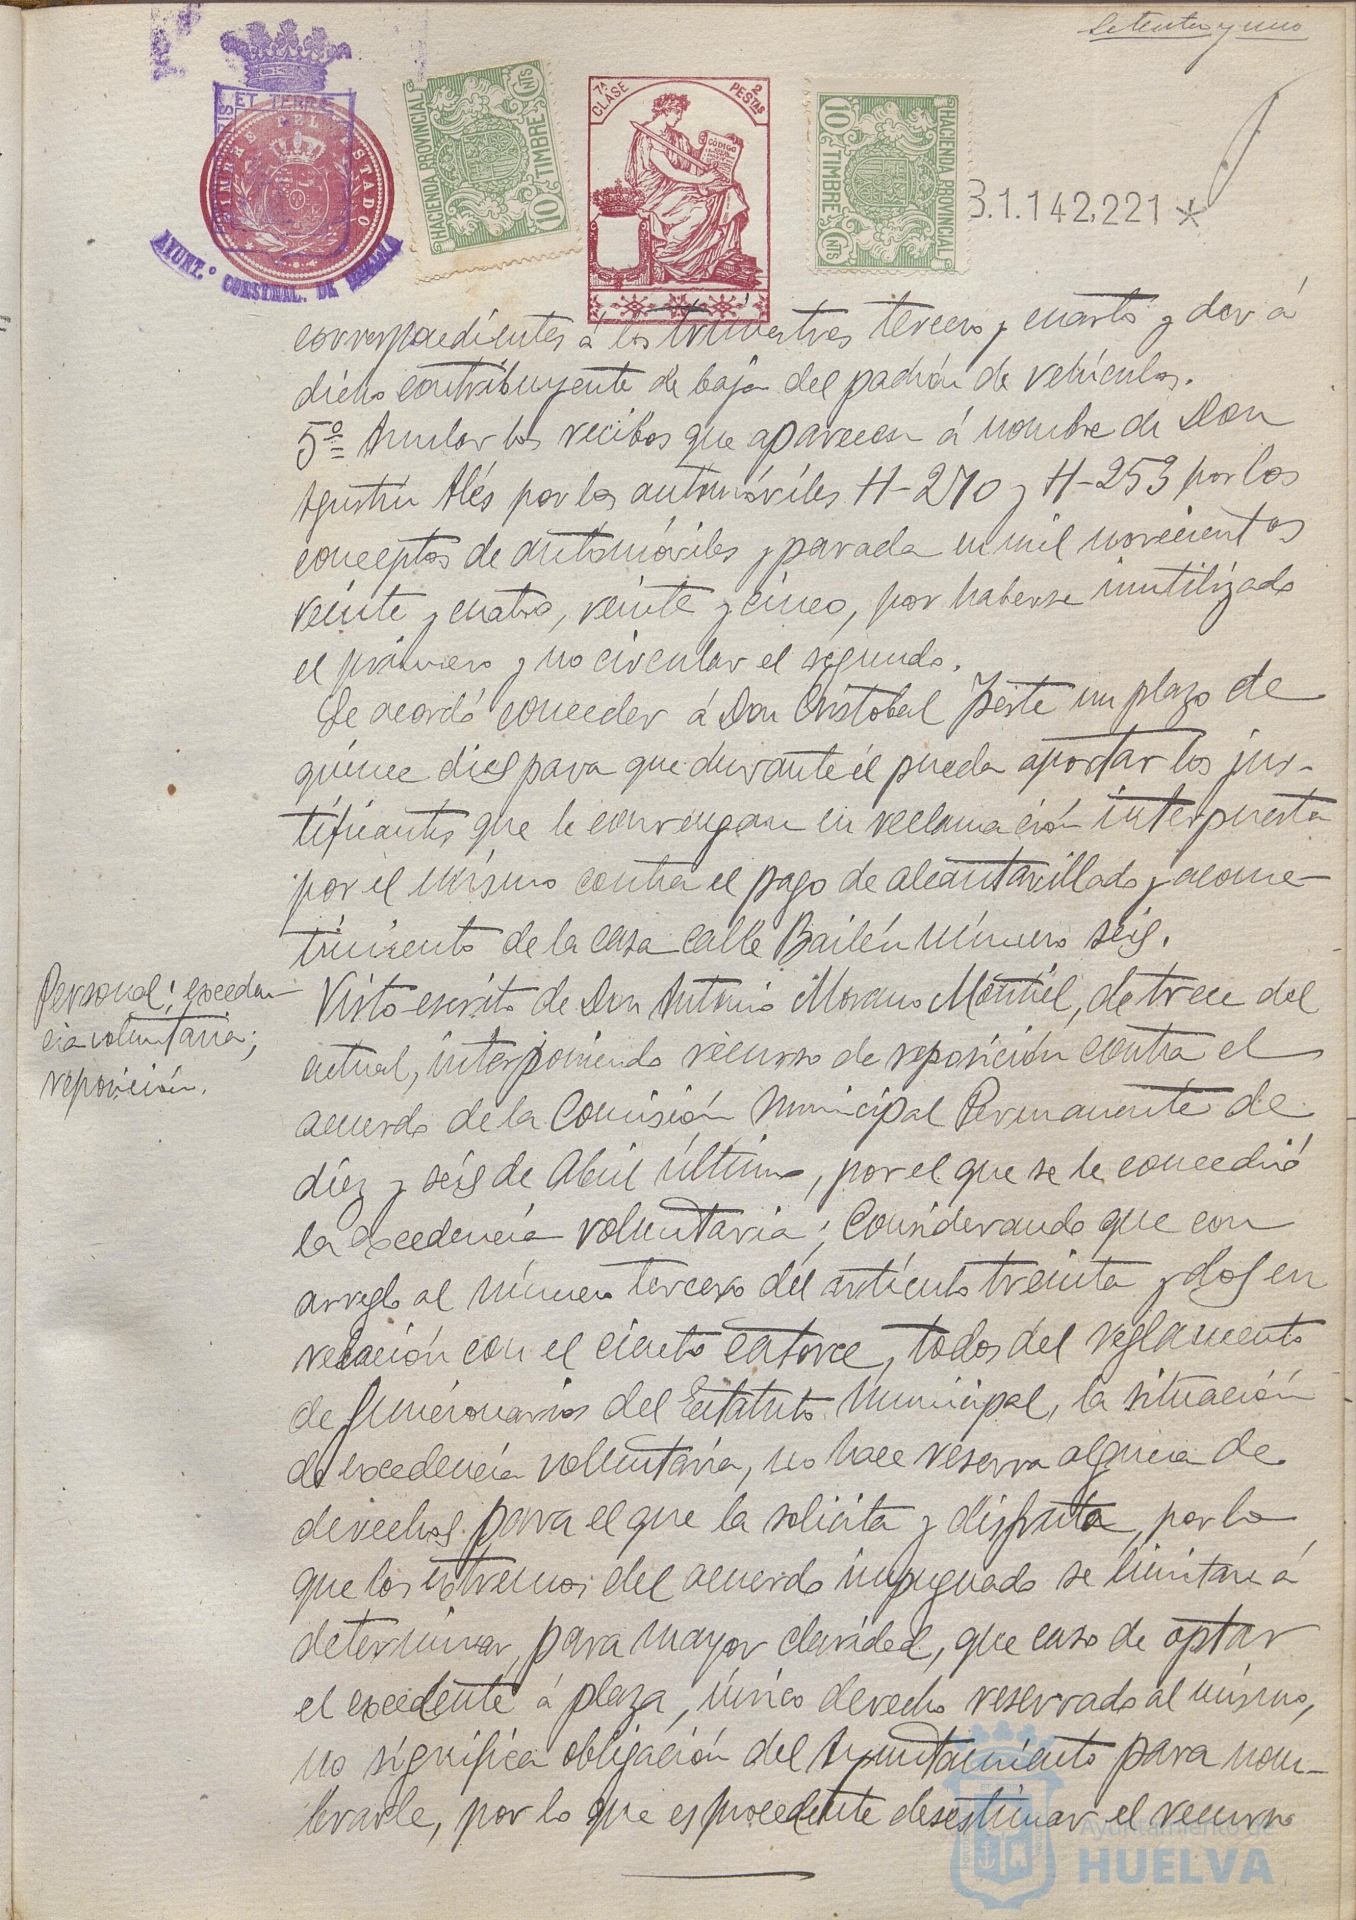 Setenta y uno
ET TERRE
TIMBRE DEL ESTADO
AYUNT.º CONSTNAL. DE HUELVA
HACIENDA PROVINCIAL
10 TIMBRE CNTS
7ª CLASE 2 PESTAS
CÓDIGO
HACIENDA PROVINCIAL
10 TIMBRE CNTS
B.1.142,221 *
correspondientes á los trimestres tercero y cuarto y dar á
dicho contribuyente de baja del padrón de vehículos.
5º Anular los recibos que aparecen á nombre de Don
Agustín Alés por los automóviles H-270 y H-253 por los
conceptos de automóviles y parada en mil novecientos
veinte y cuatro, veinte y cinco, por haberse inutilizado
el primero y no circular el segundo.
Se acordó conceder á Don Cristobal un plazo de
quince dias para que durante él pueda aportar los jus-
tificantes que le convengan en reclamación interpuesta
por el mismo contra el pago de alcantarillado y acome-
timiento de la casa calle Bailén número seis.
Personal; exceden-
cia voluntaria;
reposición.
Visto escrito de Don Antonio Morano Montiel, de trece del
actual, interponiendo recurso de reposición contra el
acuerdo de la Comisión Municipal Permanente de
diez y seis de Abril último, por el que se le concedió
la excedencia voluntaria; Considerando que con
arreglo al número tercero del artículo treinta y dos en
relación con el ciento catorce, todos del reglamento
de funcionarios del Estatuto Municipal, la situación
de excedencia voluntaria, no hace reserva alguna de
derechos para el que la solicita y disfruta, por lo
que los extremos del acuerdo impugnado se limitan á
determinar, para mayor claridad, que caso de optar
el excedente á plaza, único derecho reservado al mismo,
no significa obligación del Ayuntamiento para nom-
brarle, por lo que es procedente desestimar el recurso
Ayuntamiento de
HUELVA